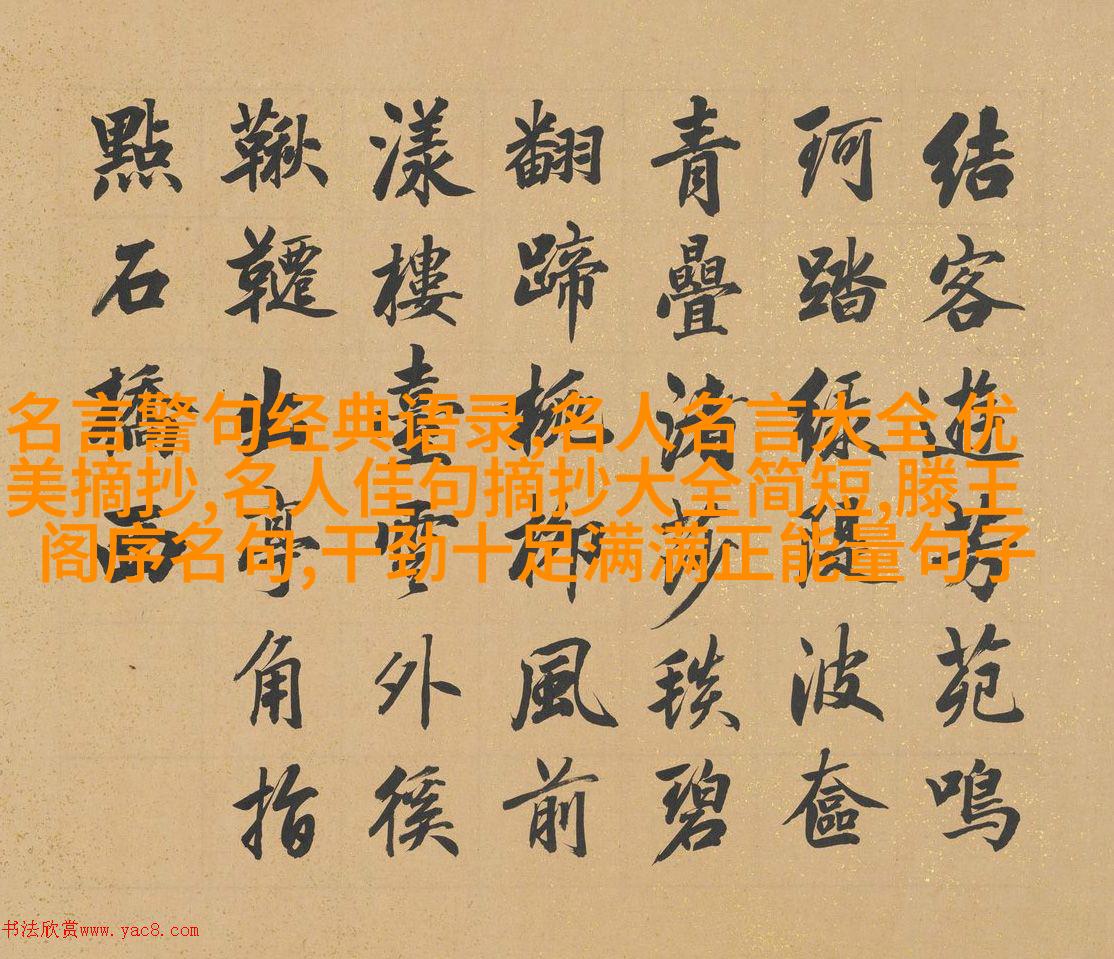 結客遊芳苑鳴
珂踏綠隄波奩
青疊莎毯碧
翻蹄風前
漾樓臺雲外徯
鞦韆出亭角指
點石橋西
名言警句经典语录,名人名言大全优
美摘抄,名人佳句摘抄大全简短,滕王
阁序名句,干劲十足满满正能量句子
书法欣赏www.yac8.com